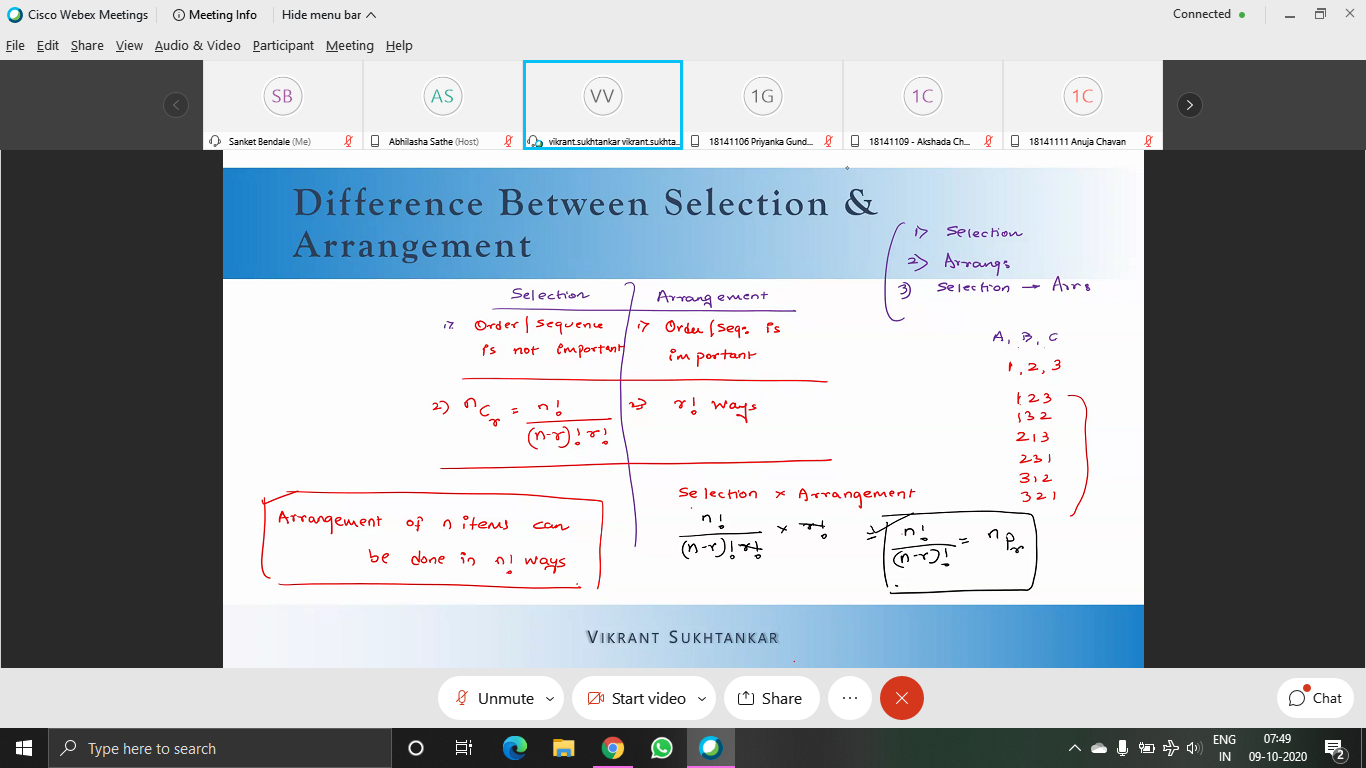 Cisco Webex Meetings
Meeting Info
Hide menu bar
Connected
File Edit Share View Audio & Video Participant Meeting Help
SB
AS
VV
1G
1C
1C
Sanket Bendale (Me)
Abhilasha Sathe (Host)
vikrant.sukhtankar vikrant.sukhta...
18141106 Priyanka Gund...
18141109 - Akshada Ch...
18141111 Anuja Chavan
Difference Between Selection &
Arrangement
1) Selection
2) Arrangs
3) Selection → Arrs
Selection
Arrangement
1) Order/Sequence
is not important
1) Order/Seq. is
important
2) nCr = n! / (n-r)! r!
2) r! ways
A, B, C
1, 2, 3
1 2 3
1 3 2
2 1 3
2 3 1
3 1 2
3 2 1
Arrangement of n items can
be done in n! ways
Selection × Arrangement
n! / (n-r)! r! × r! = n! / (n-r)! = nPr
VIKRANT SUKHTANKAR
Unmute
Start video
Share
Chat
Type here to search
ENG
IN
07:49
09-10-2020
2